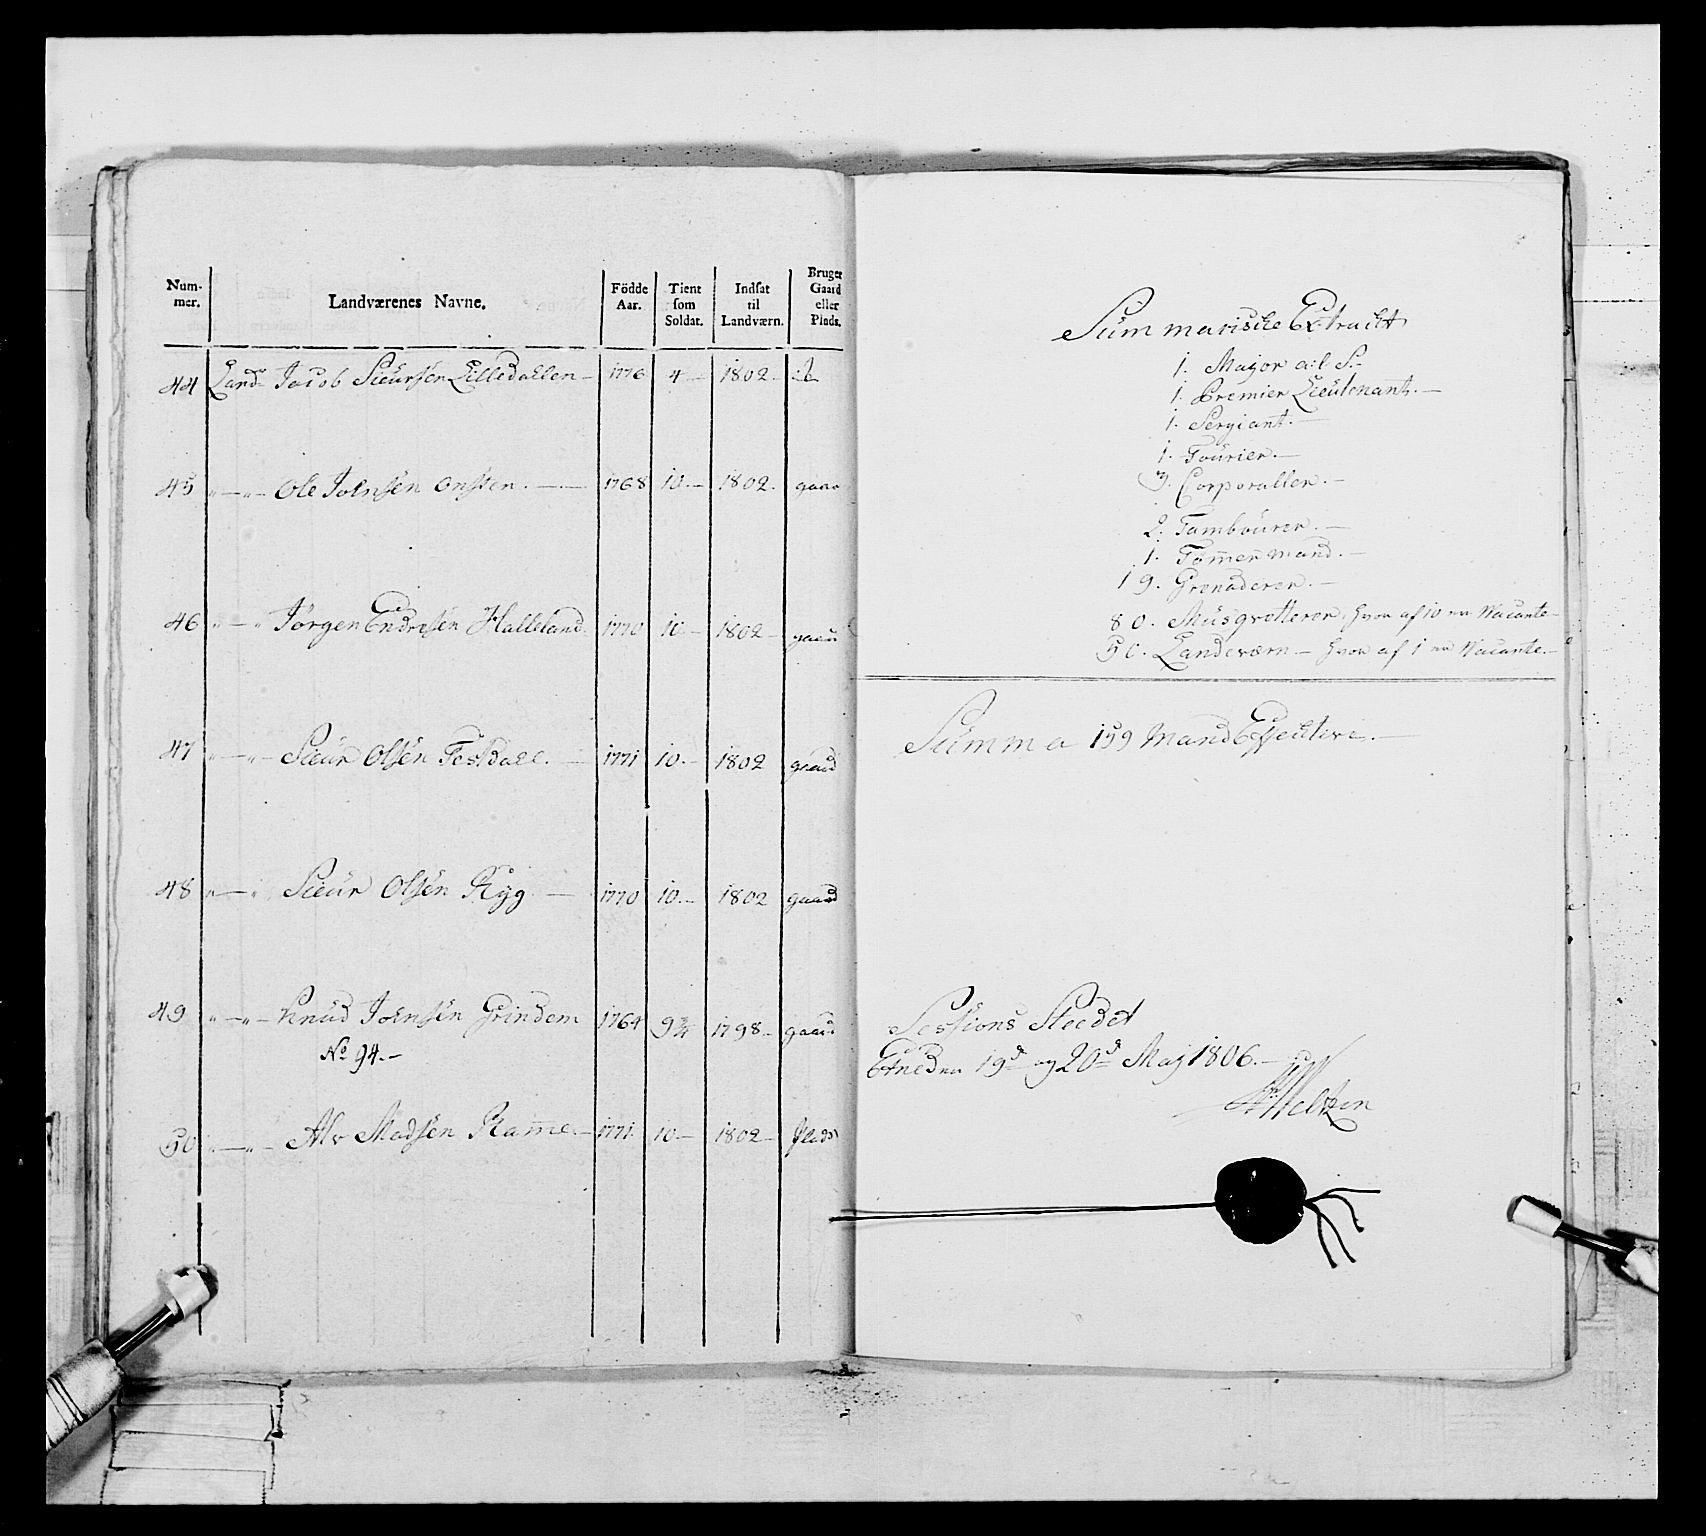 Num-mer. Landværenes Navne. Födde Aar. Tient som Soldat. Indsat til Landværn. Bruger Gaard eller Plads.
44 Land Jacob Sieursen Lilledahlen 1776 4 1802
45 " — " Ole Johnsen Onsten 1768 10 1802 gaard
46 " — " Jørgen Endresen Halleland 1770 10 1802 gaard
47 " — " Sieur Olsen Fesdall 1771 10 1802 gaard
48 " — " Sieur Olsen Ryg 1770 10 1802 gaard
49 " — " Knud Johnsen Grindem 1764 9¾ 1798 gaard
No 94.
50 " — " Alv Madsen Ramme 1771 10 1802 Plads
Summariske Extract
1. Major a: l. S.
1. Premier Lieutenant.
1. Sergiant.
1. Fourier.
3. Corporaller.
2. Tambourer.
1. Tømmermand.
19. Grenaderer.
80. Musqvetterer, hvor af 10 er Vacante
50. Landeværn hvor af 1 er Vacante.
Summa 159 Mand Effective.
Sessions Stedet
Etne den 19d og 20d Maj 1806.
Weltzin